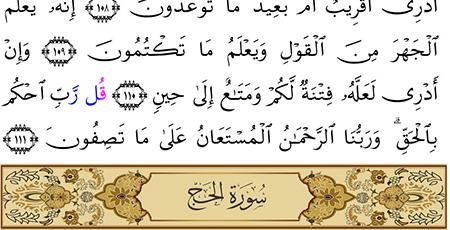 أَدْرِىٓ أَقَرِيبٌ أَم بَعِيدٌ مَّا تُوعَدُونَ ﴿١٠٩﴾ إِنَّهُۥ يَعْلَمُ
ٱلْجَهْرَ مِنَ ٱلْقَوْلِ وَيَعْلَمُ مَا تَكْتُمُونَ ﴿١١٠﴾ وَإِنْ
أَدْرِى لَعَلَّهُۥ فِتْنَةٌ لَّكُمْ وَمَتَٰعٌ إِلَىٰ حِينٍ ﴿١١١﴾ قُل رَّبِّ ٱحْكُم
بِٱلْحَقِّ ۗ وَرَبُّنَا ٱلرَّحْمَٰنُ ٱلْمُسْتَعَانُ عَلَىٰ مَا تَصِفُونَ ﴿١١٢﴾
سُورَةُ الحَجِّ